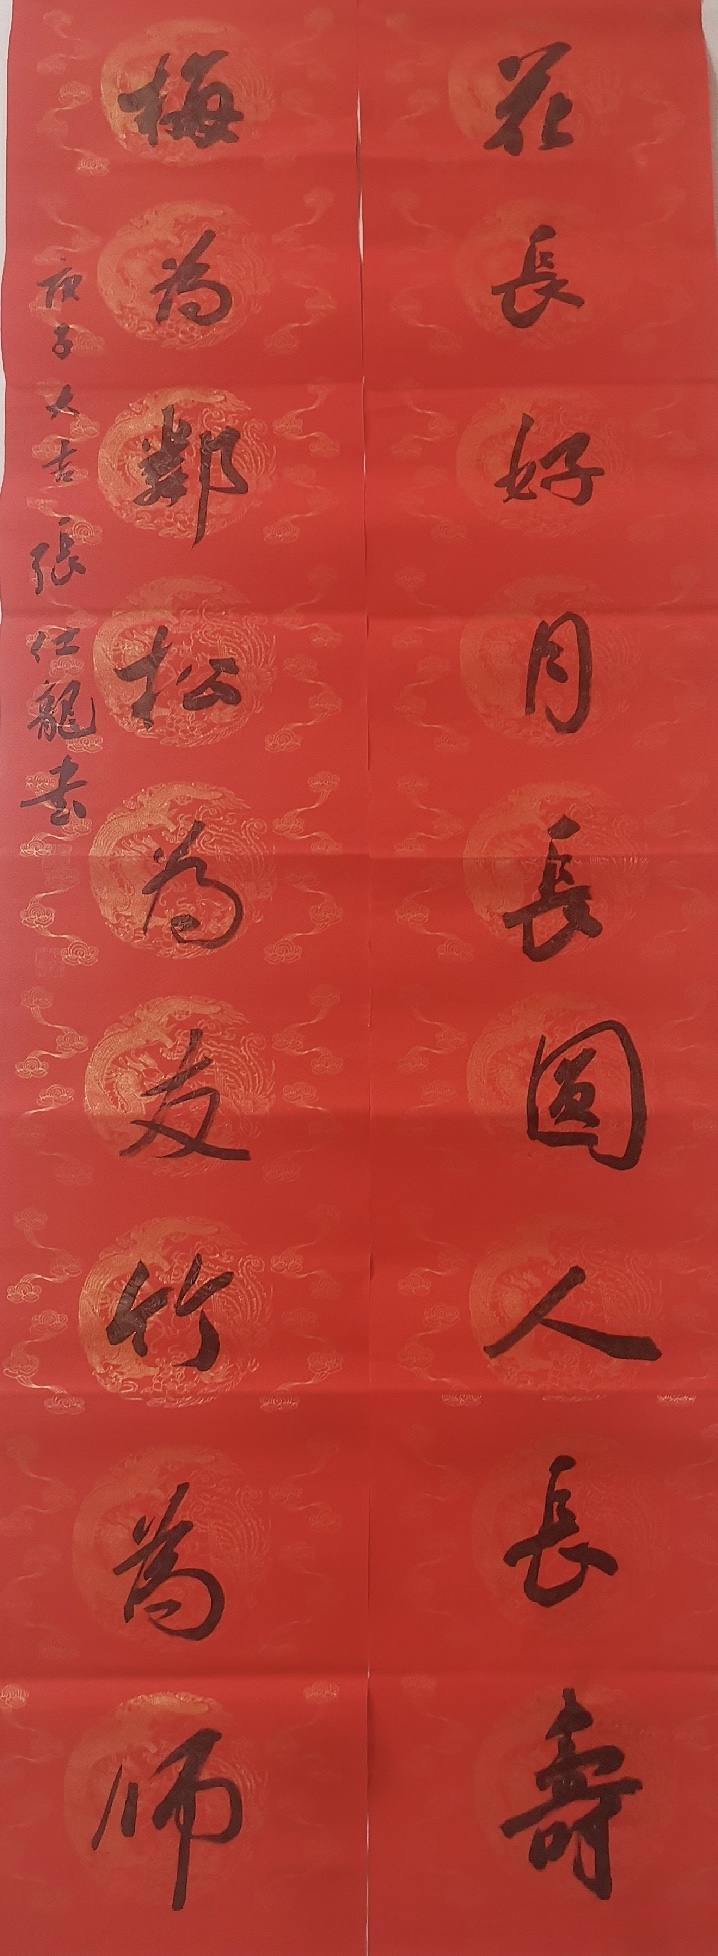 花長好月長圓人長壽
梅為鄰松為友竹為师
庚子大吉張仕龍书